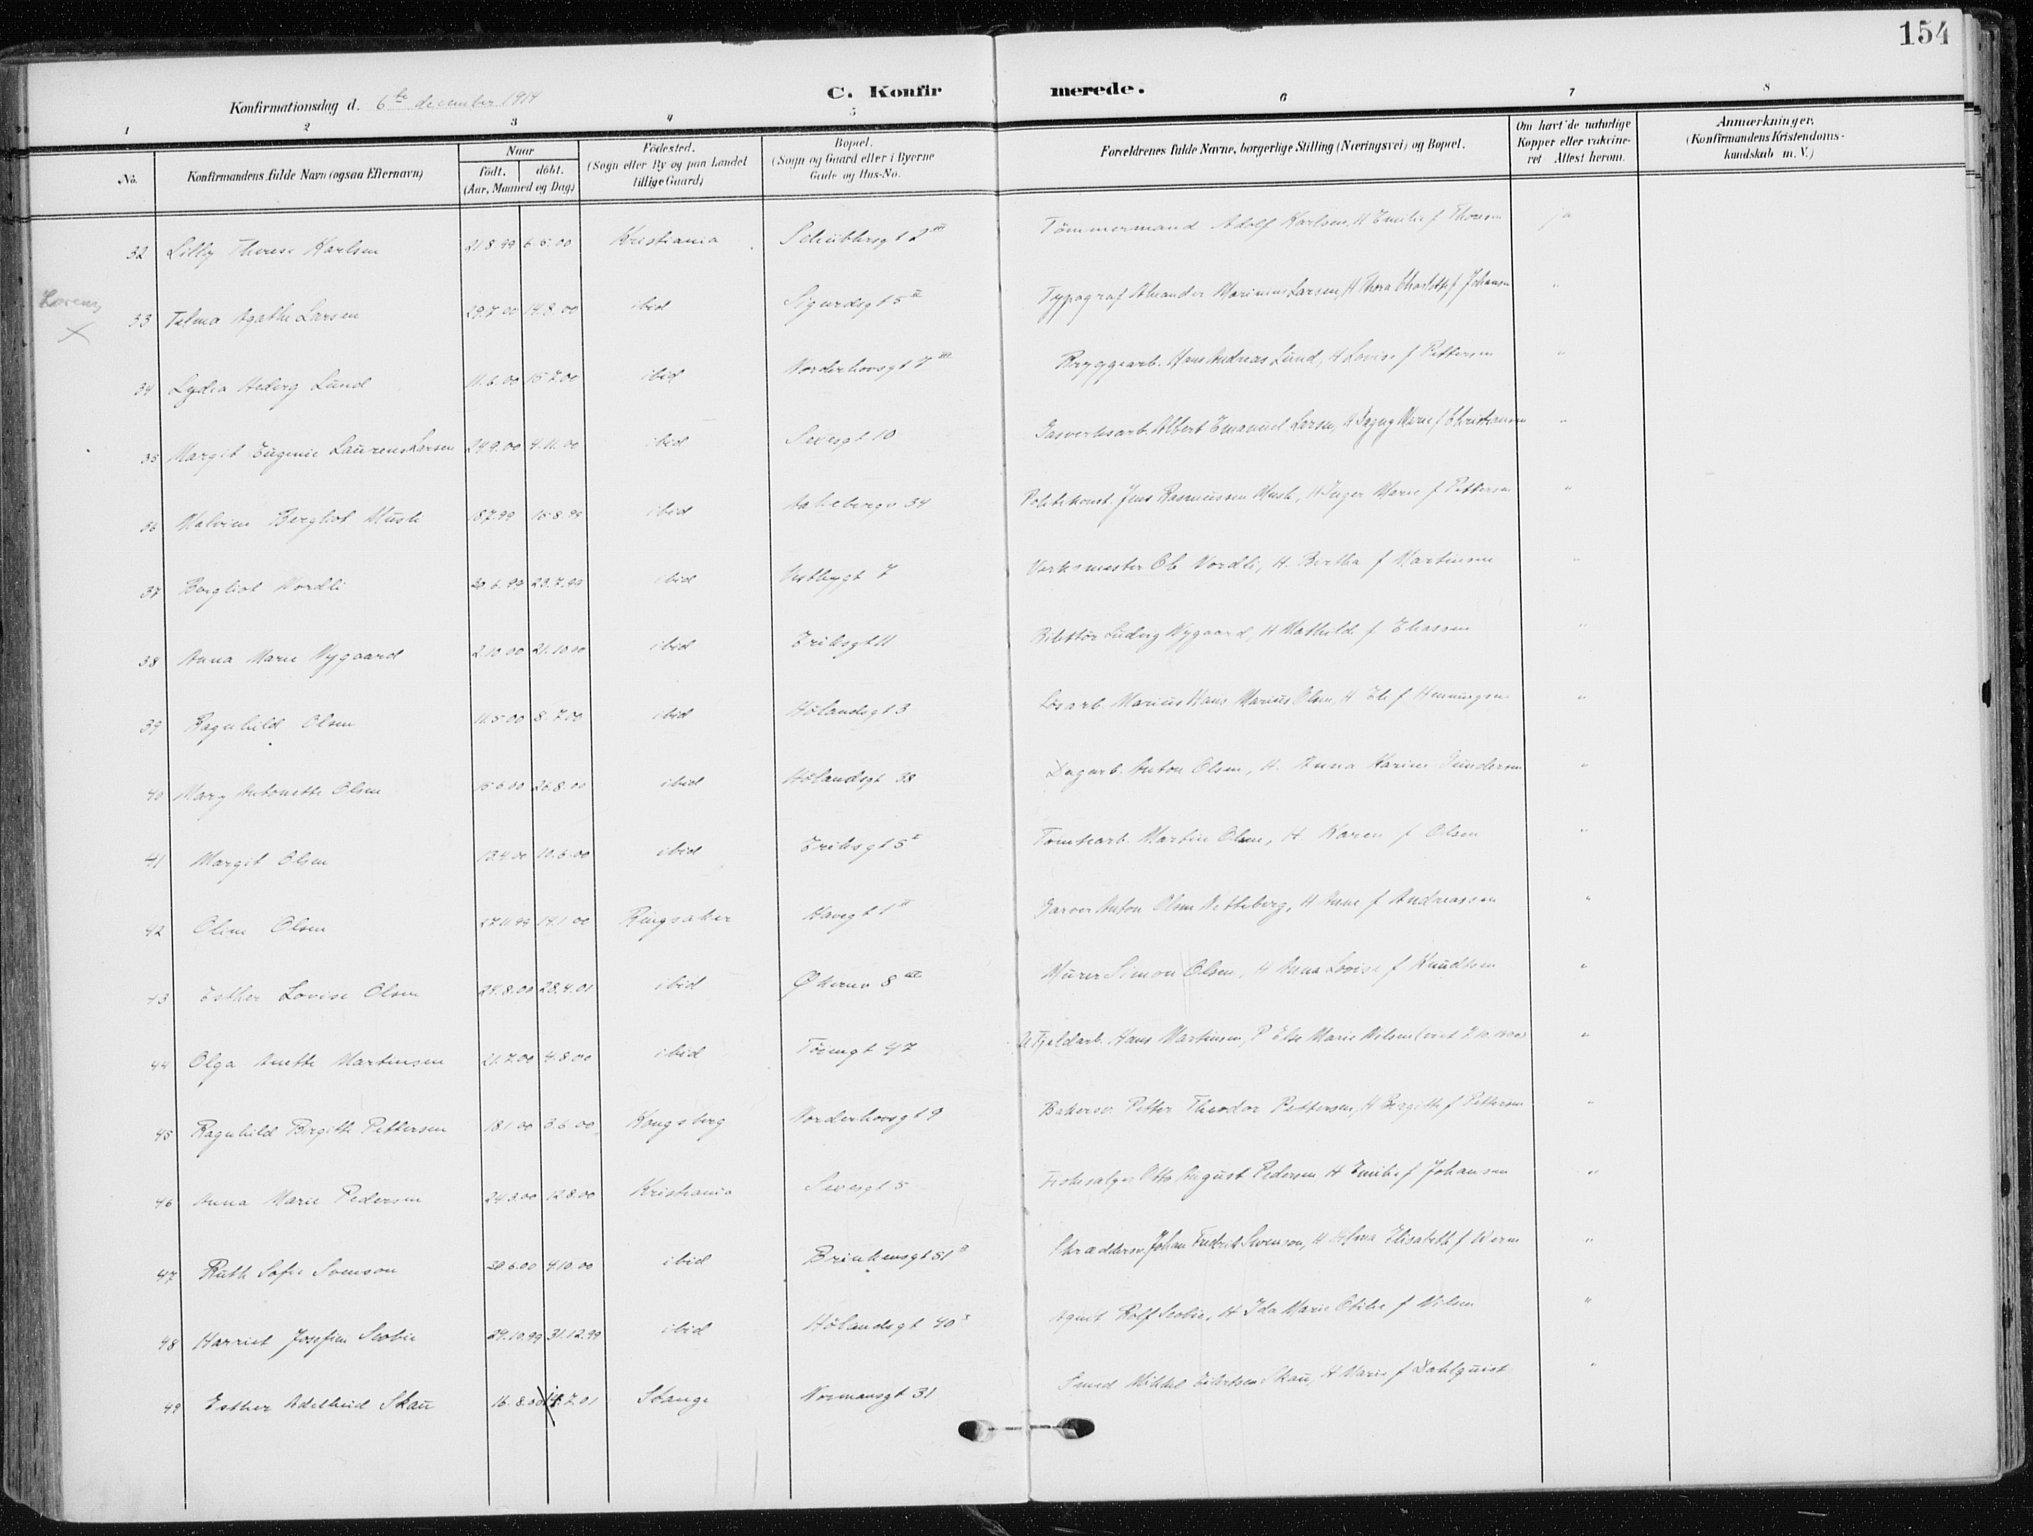 154
C. Konfirmerede.
Konfirmationsdag d. 6te december 1914
1 2 3 4 5 6 7 8
No. Konfirmandens fulde Navn (ogsaa Efternavn) Naar födt. döbt. (Aar, Maaned og Dag) Födested. (Sogn eller By og paa Landet tillige Gaard) Bopæl. (Sogn og Gaard eller i Byerne Gade og Hus-No. Forældrenes fulde Navne, borgerlige Stilling (Næringsvei) og Bopæl. Om havt de naturlige Kopper eller vaccineret Attest herom. Anmærkninger. (Konfirmandens Kristendomskundskab m. V.)
32 Lilly Therese Karlsen 21.8.99 6.5.00 Kristiania Schüblersgt 2 III Tömmermand Adolf Karlsen, H Emilie f Thoresen ja
Lorenz
X
33 Telma Agathe Larsen 29.7.00 14.8.00 ibid Sigurdsgt 5 II Typograf Marinius Larsen, H Thora Charlotte f Johansen "
34 Lydia Hedvig Lund 11.6.00 15.7.00 ibid Norderhovsgt 7 III Bryggearb. Hans Andreas Lund, H Lovise f Pettersen "
35 Margit Eugenie Laurens Larsen 24.9.00 4.11.00 ibid Sevesgt 10 Gasverksarb. Albert Emanuel Larsen, H Dagny Marie f Christiansen "
36 Malvine Bergliot Musk 18.7.99 15.8.99 ibid Aakebergv 34 Politikonst. Jens Rasmussen Musk, H Inger Marie f Pettersen "
37 Bergliot Nordli 20.6.99 23.7.99 ibid Vestbygt 7 Verksmester Ole Nordli, H. Bertha f Martinsen "
38 Anna Marie Nygaard 2.10.00 21.10.00 ibid Eriksgt 11 Billettör Ludvig Nygaard, H Mathilde f Eliassen "
39 Ragnhild Olsen 11.5.00 8.7.00 ibid Hölandsgt 3 Lösarb. Marius Hans Marius Olsen, H Eli f Henningsen "
40 Mary Antonette Olsen 15.6.00 26.8.00 ibid Hölandsgt 38 Dagarb. Anton Olsen, H. Anna Karine Gundersen "
41 Margit Olsen 13.4.00 10.6.00 ibid Eriksgt 5 I Tomtearb. Martin Olsen, H Karen f Olsen "
42 Oline Olsen 27.11.99 14.1.00 Ringsaker Havegt 1 II Garver Anton Olsen Netteberg, H Anne f Andreassen "
43 Esther Lovise Olsen 24.8.00 28.4.01 ibid Økernv 8 III Murer Simon Olsen, H Anna Lovise f Knudtsen "
44 Olga Anette Martinsen 21.7.00 4.8.00 ibid Töiengt 47 Fjeldarb. Hans Martinsen, P Else Marie Nilsen (viet 7.10.1900) "
45 Ragnhild Birgitte Pettersen 18.1.00 3.6.00 Kongsberg Norderhovsgt 9 Bakersv. Petter Theodor Pettersen, H Birgitte f Pettersen "
46 Anna Marie Pedersen 24.3.00 12.8.00 Kristiania Sevesgt 5 Fiskesælger Otto August Pedersen H Emilie f Johansen "
47 Ruth Sofie Svenson 20.6.00 4.10.00 ibid Brinkensgt 51 Skræddersv. Johan Fredrik Svenson, H Selma Elisabeth f Werm "
48 Harriet Josefine Scobie 29.10.99 31.12.99 ibid Hölandsgt 40 I Agent Rolf Scobie, H Ida Marie Otilie f Nilsen "
49 Esther Adelheid Skau 16.8.00 14.7.01 Stange Normansgt 31 Smed Mikkel Eilertsen Skau, H Marie f Dahlquist "